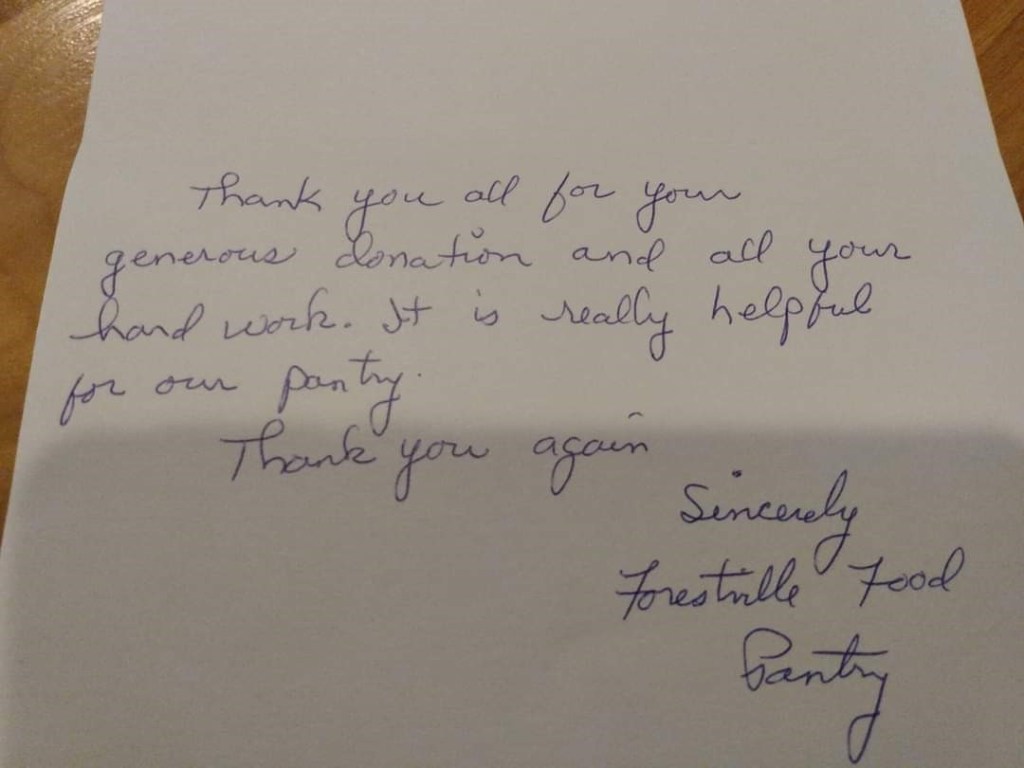 Thank you all for your
generous donation and all your
hard work. It is really helpful
for our pantry.
Thank you again
Sincerely
Forestville Food
Pantry